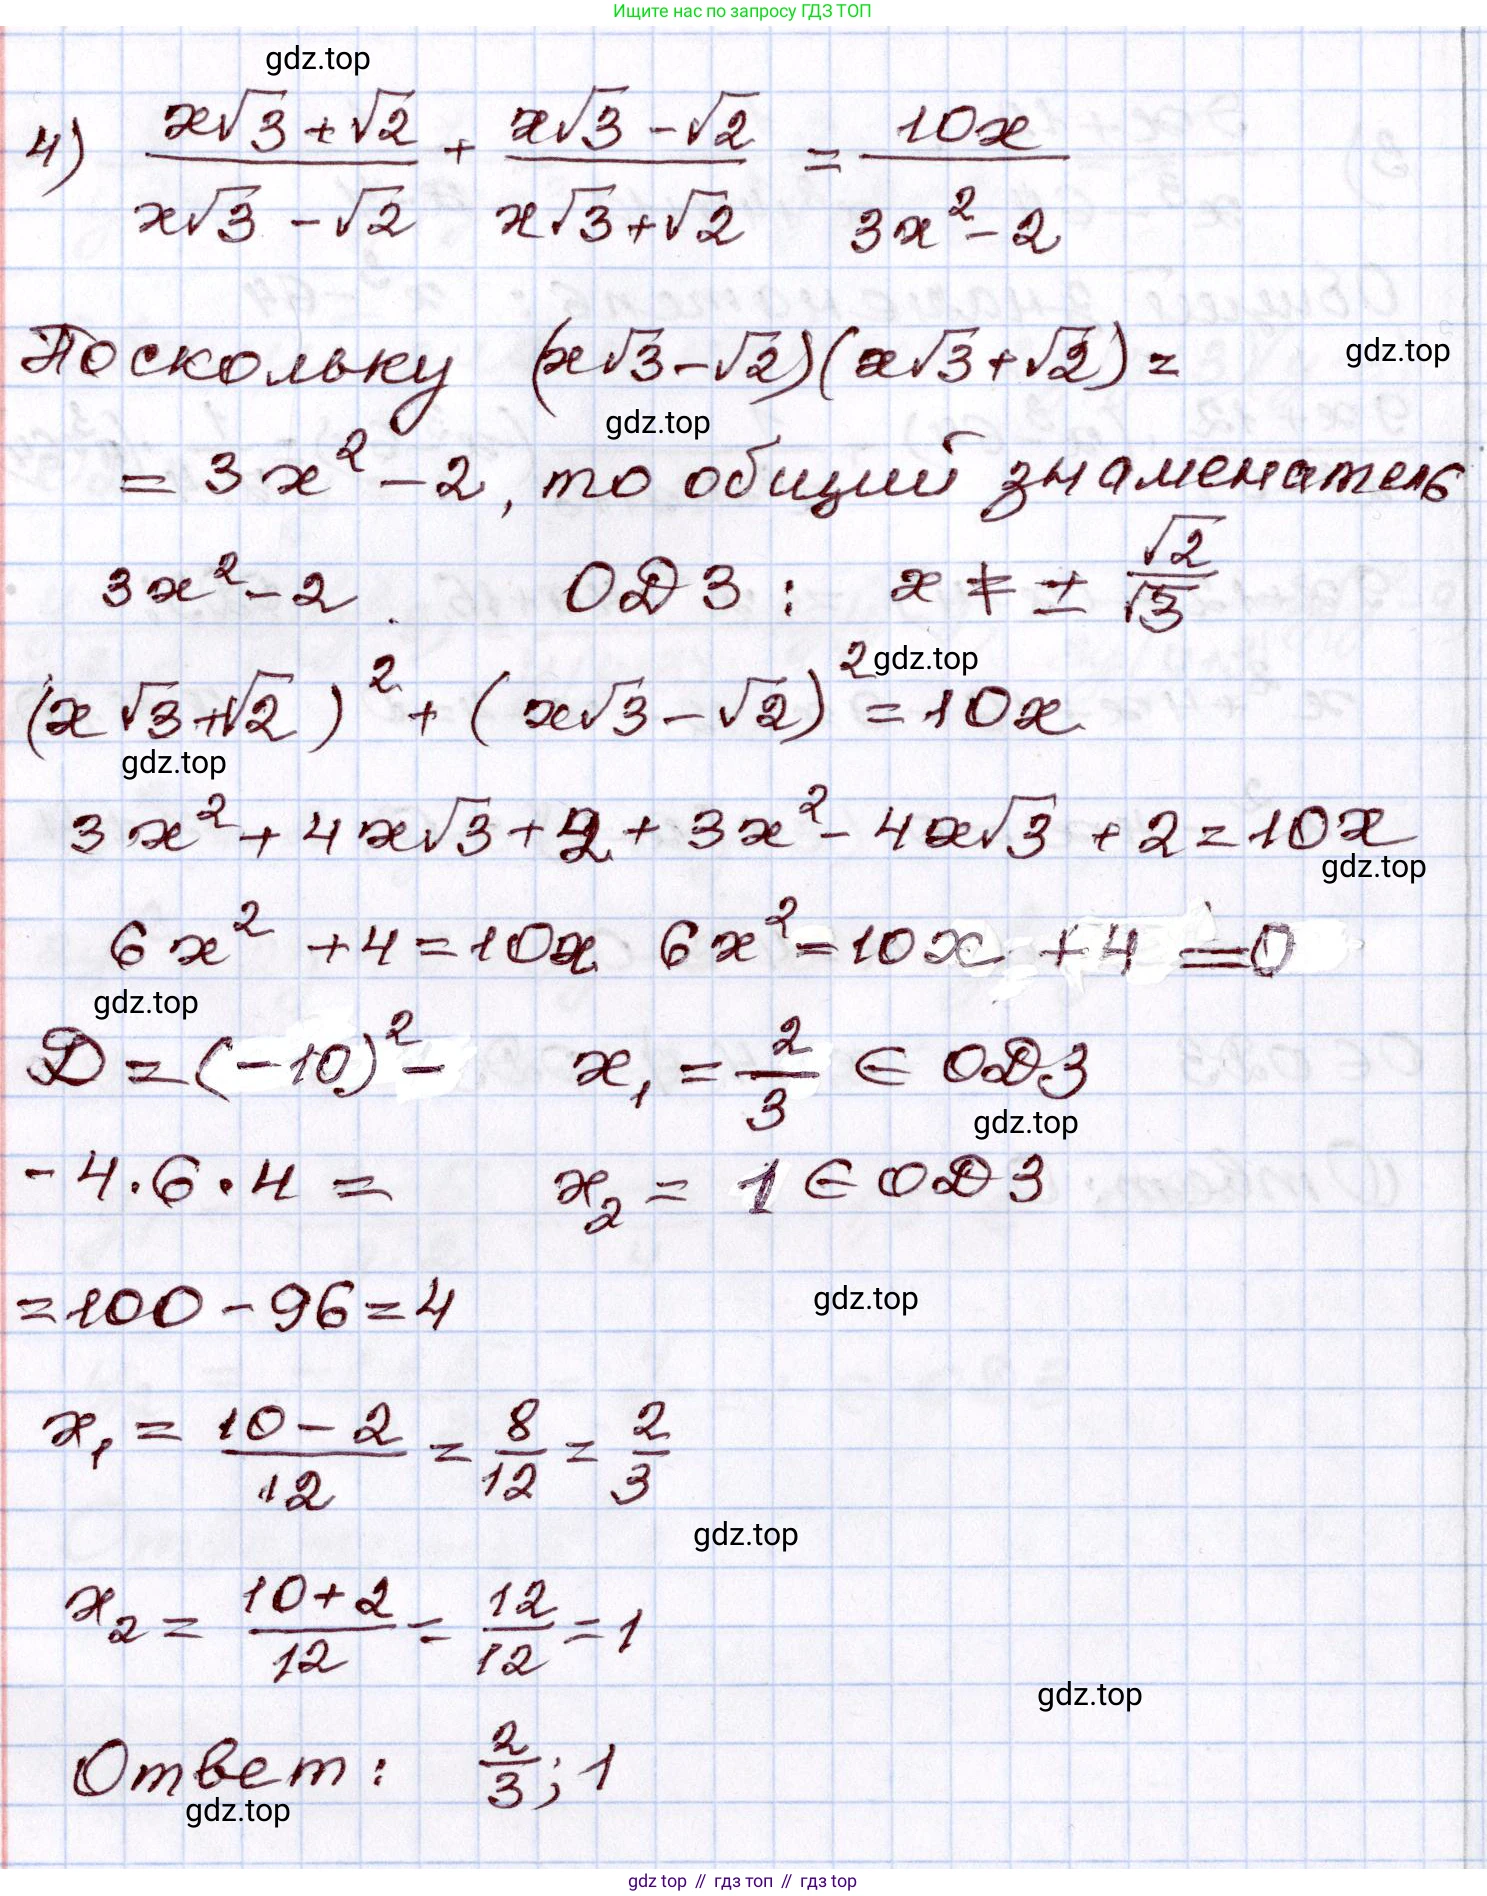 Ищите нас по запросу ГДЗ ТОП
gdz.top
4) (x√3 + √2)/(x√3 - √2) + (x√3 - √2)/(x√3 + √2) = 10x/(3x² - 2)
Поскольку (x√3 - √2)(x√3 + √2) =
gdz.top
gdz.top
= 3x² - 2, то общий знаменатель
3x² - 2. ОДЗ: x ≠ ± √2/√3
(x√3 + √2)² + (x√3 - √2)² = 10x
gdz.top
gdz.top
3x² + 4x√3 + 2 + 3x² - 4x√3 + 2 = 10x
gdz.top
6x² + 4 = 10x 6x² = 10x + 4 = 0
gdz.top
D = (-10)² - x₁ = 2/3 ∈ ОДЗ
gdz.top
- 4 · 6 · 4 = x₂ = 1 ∈ ОДЗ
= 100 - 96 = 4
gdz.top
x₁ = (10 - 2)/12 = 8/12 = 2/3
gdz.top
x₂ = (10 + 2)/12 = 12/12 = 1
gdz.top
Ответ: 2/3; 1
gdz.top
gdz top // гдз топ // гдз top